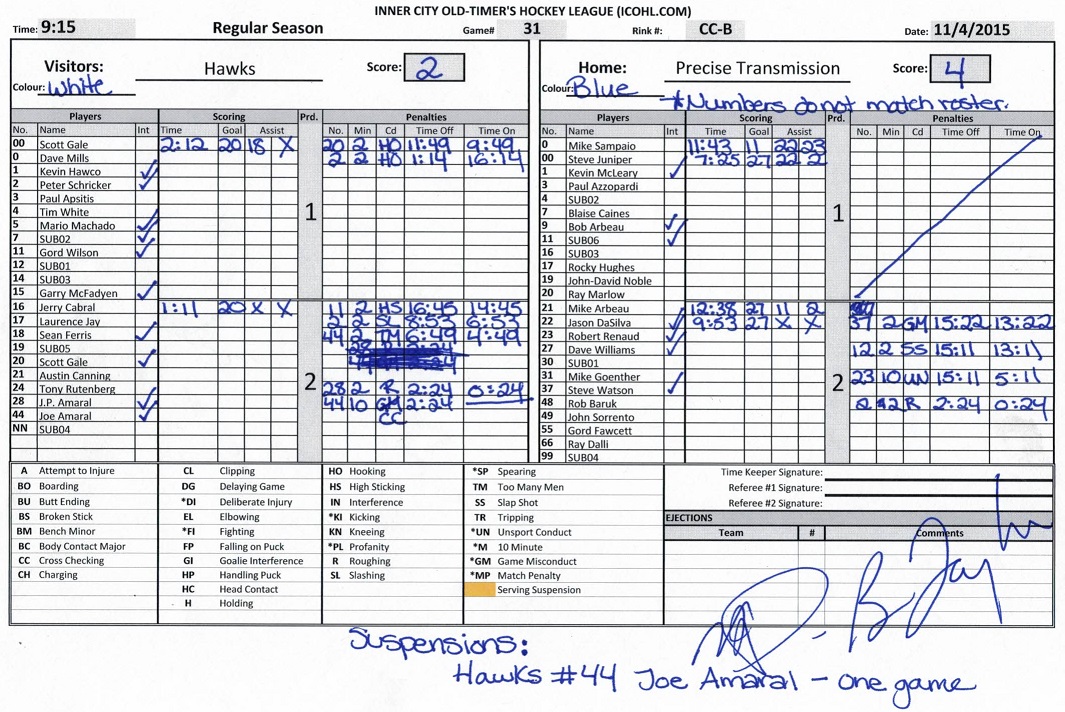 INNER CITY OLD-TIMER'S HOCKEY LEAGUE (ICOHL.COM)
Time: 9:15 Regular Season Game# 31 Rink #: CC-B Date: 11/4/2015
Visitors: Hawks Score: 2
Colour: White
Home: Precise Transmission Score: 4
Colour: Blue
* Numbers do not match roster.
Players Scoring Prd. Penalties
No. Name Int Time Goal Assist No. Min Cd Time Off Time On
00 Scott Gale 2:12 20 18 X 20 2 HO 11:49 9:49
0 Dave Mills 2 2 HO 1:14 16:14
1 Kevin Hawco ✓
2 Peter Schricker ✓
3 Paul Apsitis
4 Tim White
5 Mario Machado ✓
7 SUB02 ✓
11 Gord Wilson ✓
12 SUB01
14 SUB03
15 Garry McFadyen ✓
1
16 Jerry Cabral 1:11 20 X X 11 2 HS 16:45 14:45
17 Laurence Jay 2 2 SL 8:53 6:53
18 Sean Ferris ✓ 44 2 TM 6:49 4:49
19 SUB05
20 Scott Gale ✓
21 Austin Canning
24 Tony Rutenberg 28 2 R 2:24 0:24
28 J.P. Amaral ✓ 44 10 GM 2:24
44 Joe Amaral ✓ CC
NN SUB04
2
Players Scoring Prd. Penalties
No. Name Int Time Goal Assist No. Min Cd Time Off Time On
0 Mike Sampaio 11:43 11 22 23
00 Steve Juniper 7:25 27 22 2
1 Kevin McLeary ✓
3 Paul Azzopardi
4 SUB02
7 Blaise Caines
9 Bob Arbeau ✓
11 SUB06 ✓
16 SUB03
17 Rocky Hughes
19 John-David Noble
20 Ray Marlow
1
21 Mike Arbeau 12:38 27 11 2
22 Jason DaSilva ✓ 9:53 27 X X 37 2 GM 15:22 13:22
23 Robert Renaud ✓
27 Dave Williams ✓ 12 2 SS 15:11 13:11
30 SUB01
31 Mike Goenther 23 10 UN 15:11 5:11
37 Steve Watson ✓
48 Rob Baruk 2 R 2:24 0:24
49 John Sorrento
55 Gord Fawcett
66 Ray Dalli
99 SUB04
2
A Attempt to Injure CL Clipping HO Hooking *SP Spearing
BO Boarding DG Delaying Game HS High Sticking TM Too Many Men
BU Butt Ending *DI Deliberate Injury IN Interference SS Slap Shot
BS Broken Stick EL Elbowing *KI Kicking TR Tripping
BM Bench Minor *FI Fighting KN Kneeing *UN Unsport Conduct
BC Body Contact Major FP Falling on Puck *PL Profanity *M 10 Minute
CC Cross Checking GI Goalie Interference R Roughing *GM Game Misconduct
CH Charging HP Handling Puck SL Slashing *MP Match Penalty
HC Head Contact Serving Suspension
H Holding
Time Keeper Signature:
Referee #1 Signature:
Referee #2 Signature:
EJECTIONS
Team # Comments
Suspensions:
Hawks #44 Joe Amaral - one game